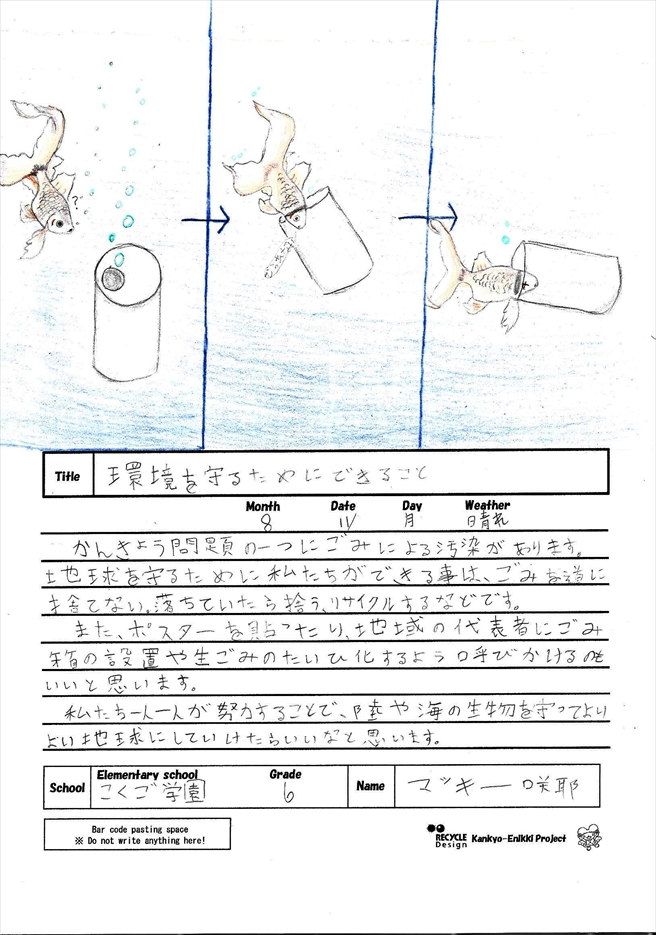 ?
Title 環境を守るためにできること
Month Date Day Weather
8 11 月 晴れ
かんきょう問題の一つにごみによる汚染があります。
地球を守るために私たちができる事は、ごみを道に
捨てない。落ちていたら拾う、リサイクルするなどです。
また、ポスターを貼ったり、地域の代表者にごみ
箱の設置や生ごみのたいひ化するよう呼びかけるのも
いいと思います。
私たち一人一人が努力することで、陸や海の生物を守ってより
よい地球にしていけたらいいなと思います。
School Elementary school Grade Name
こくご学園 6 マッキー咲耶
Bar code pasting space
※ Do not write anything here!
RECYCLE Design Kankyo-Enikki Project